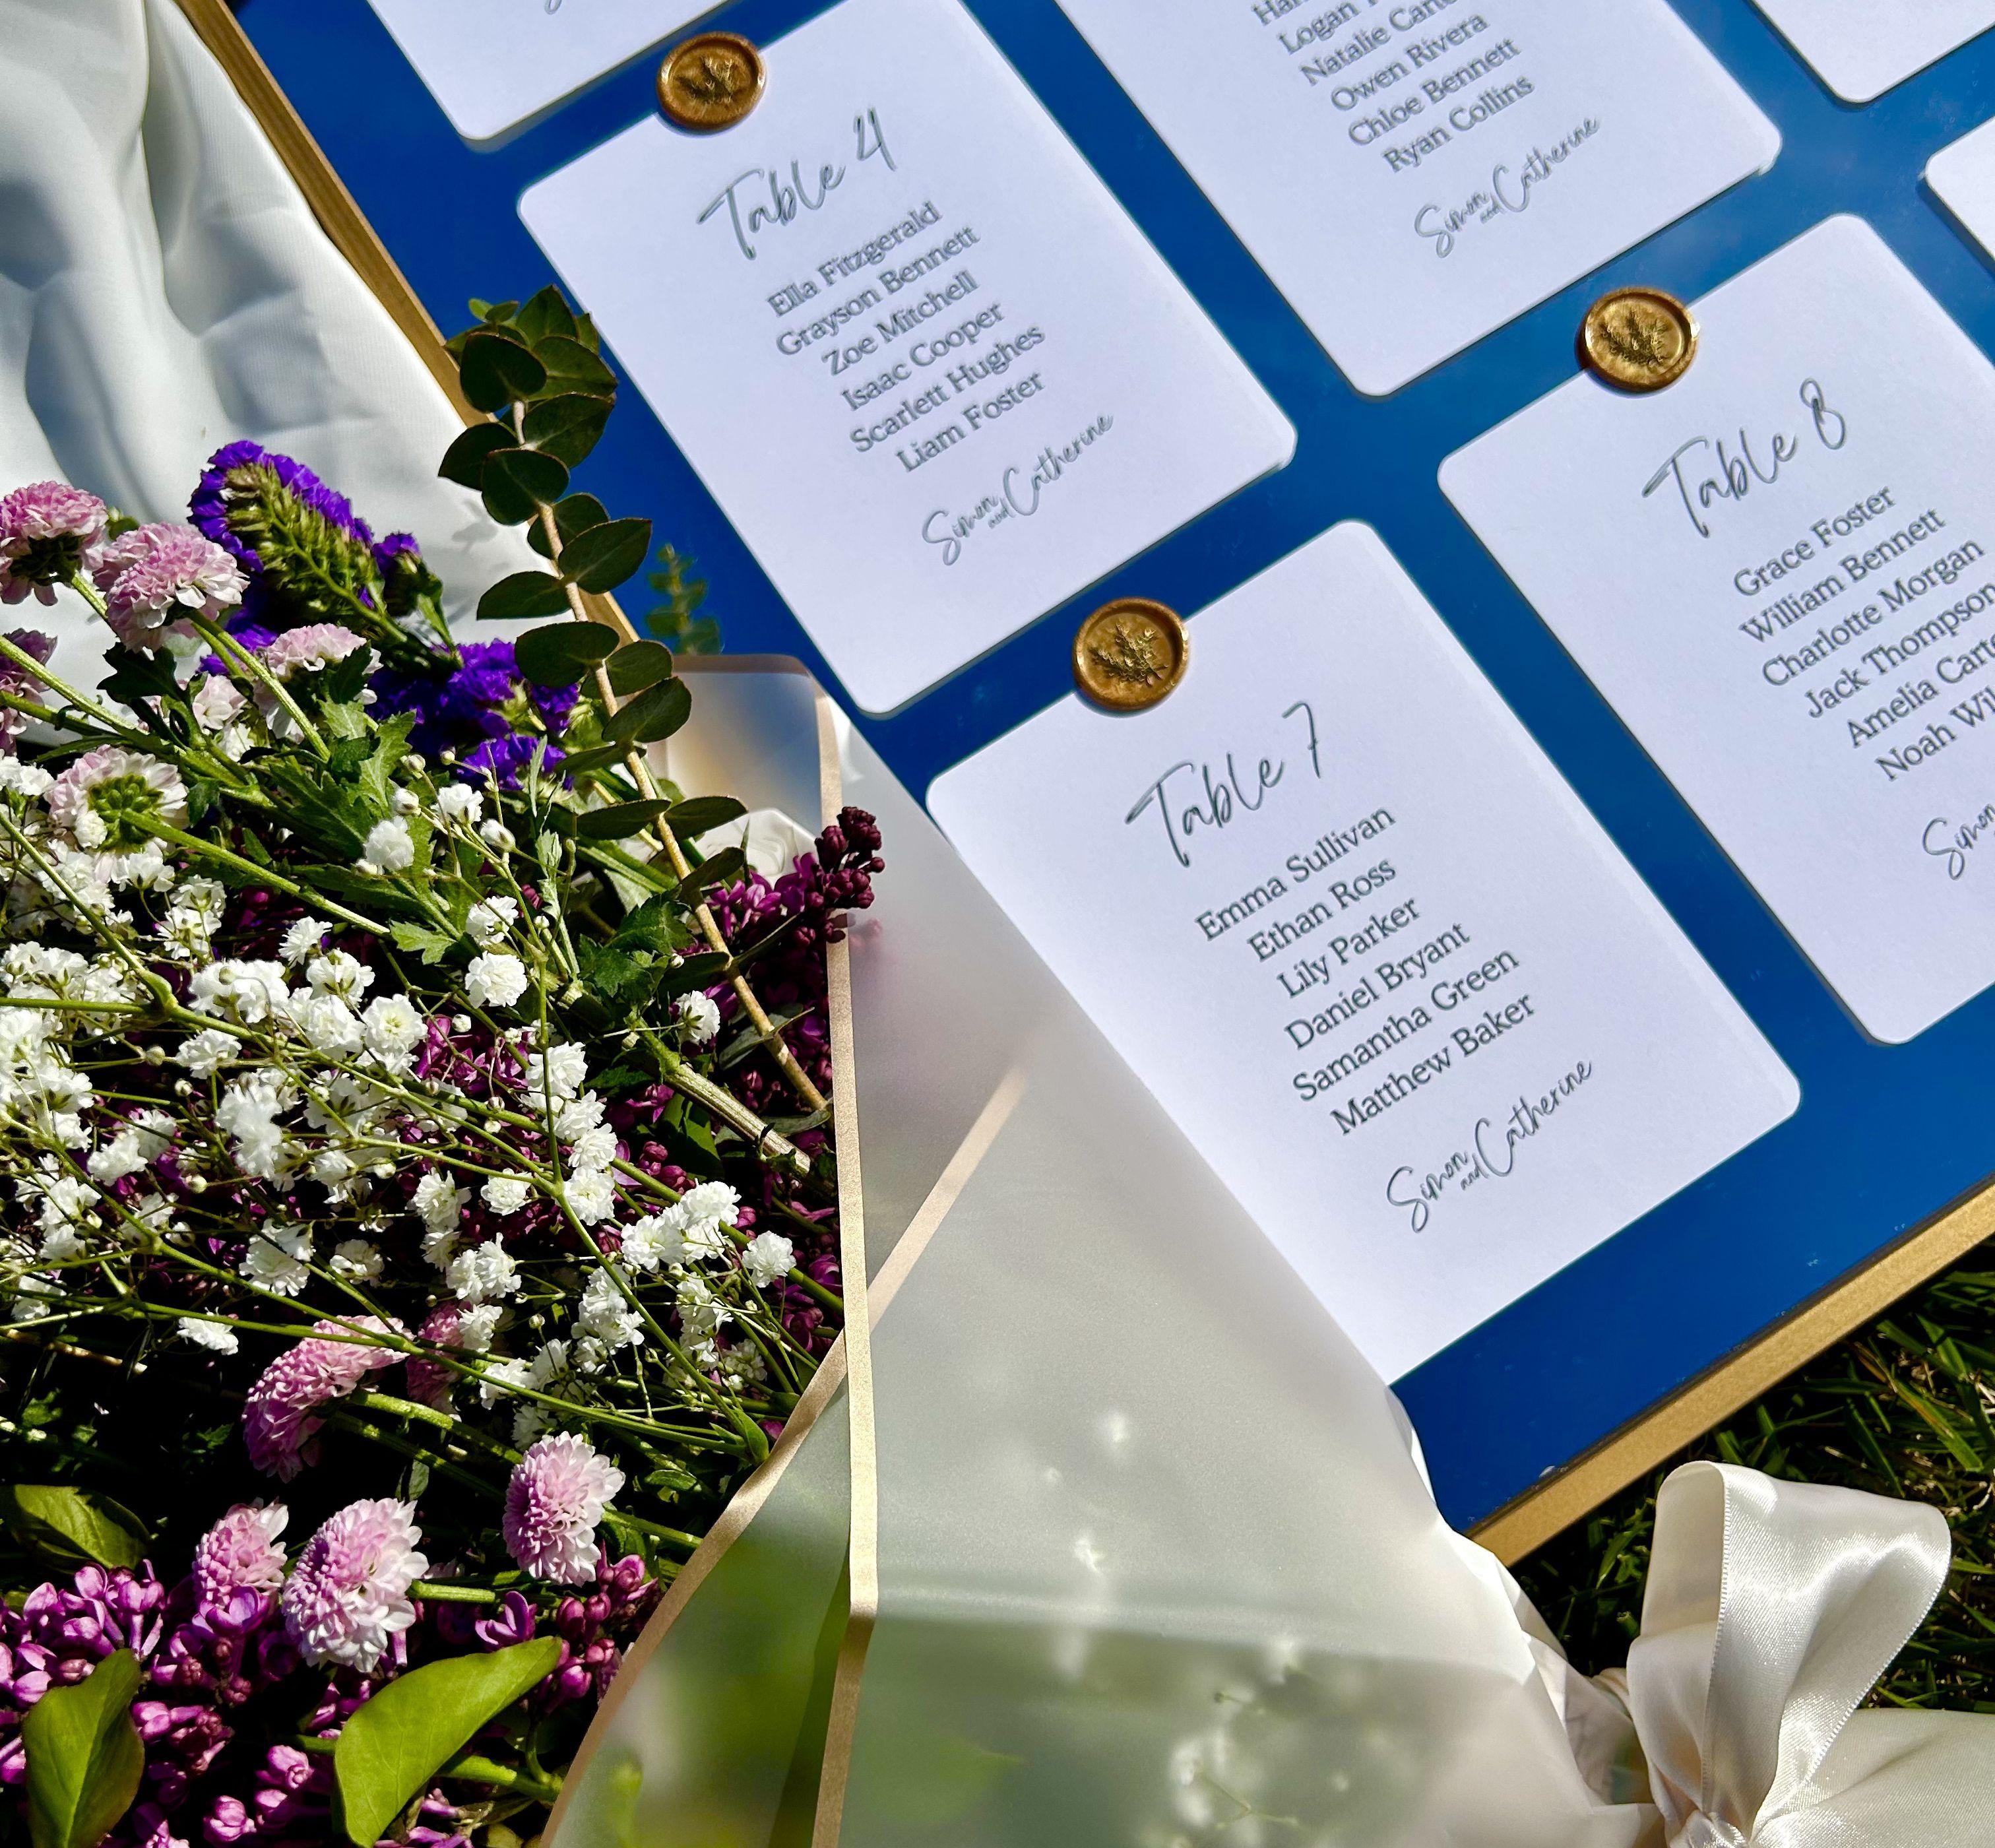 Table 4
Ella Fitzgerald
Grayson Bennett
Zoe Mitchell
Isaac Cooper
Scarlett Hughes
Liam Foster
Simon and Catherine
Logan
Natalie
Owen Rivera
Chloe Bennett
Ryan Collins
Simon and Catherine
Table 7
Emma Sullivan
Ethan Ross
Lily Parker
Daniel Bryant
Samantha Green
Matthew Baker
Simon and Catherine
Table 8
Grace Foster
William Bennett
Charlotte Morgan
Jack Thompson
Amelia
Noah
Simon